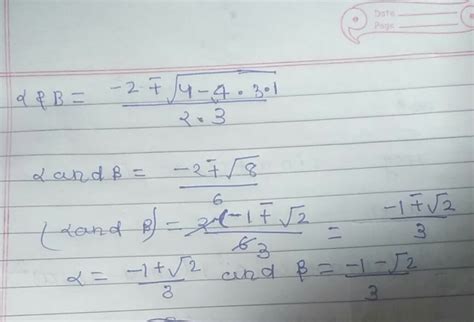 Date
Page
α & β = (-2 ∓ √(4 - 4 · 3 · 1)) / (2 · 3)
α and β = (-2 ∓ √8) / 6
(α and β) = 2(-1 ∓ √2) / 6 3 = (-1 ∓ √2) / 3
α = (-1 + √2) / 3 and β = (-1 - √2) / 3